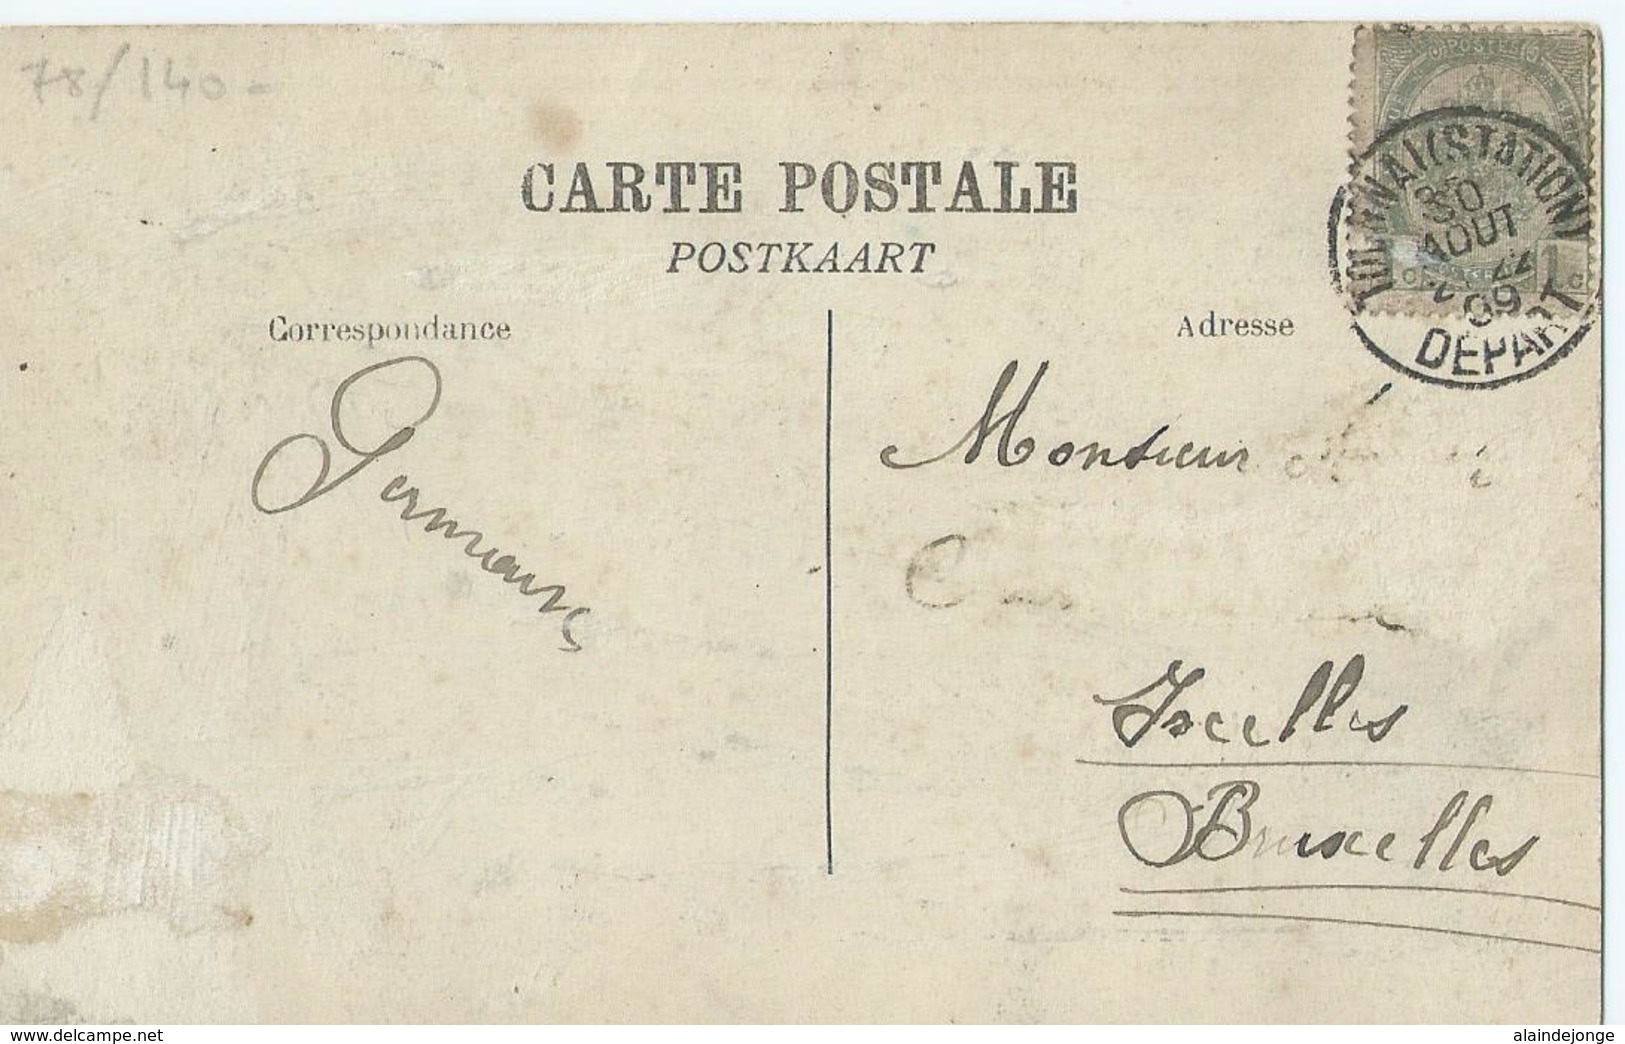 78/140-
CARTE POSTALE
POSTKAART
Correspondance
Adresse
POSTES
TOURNAI (STATION)
30
AOUT
22
09
DEPART
1
Monsieur
Ixelles
Bruxelles
www.delcampe.net
alaindejonge